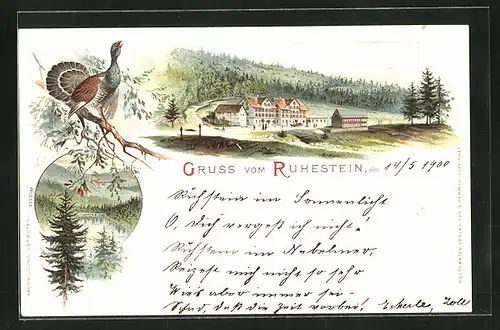 GRUSS VOM RUHESTEIN, den 14/5 1900
Ruhstein im Sonnenlicht
O, Dich vergeß ich nicht!
Ruhstein im Nebelmeer,
Reizest mich nicht so sehr
Wies aber immer sei -
Schad, daß die Zeit vorbei!